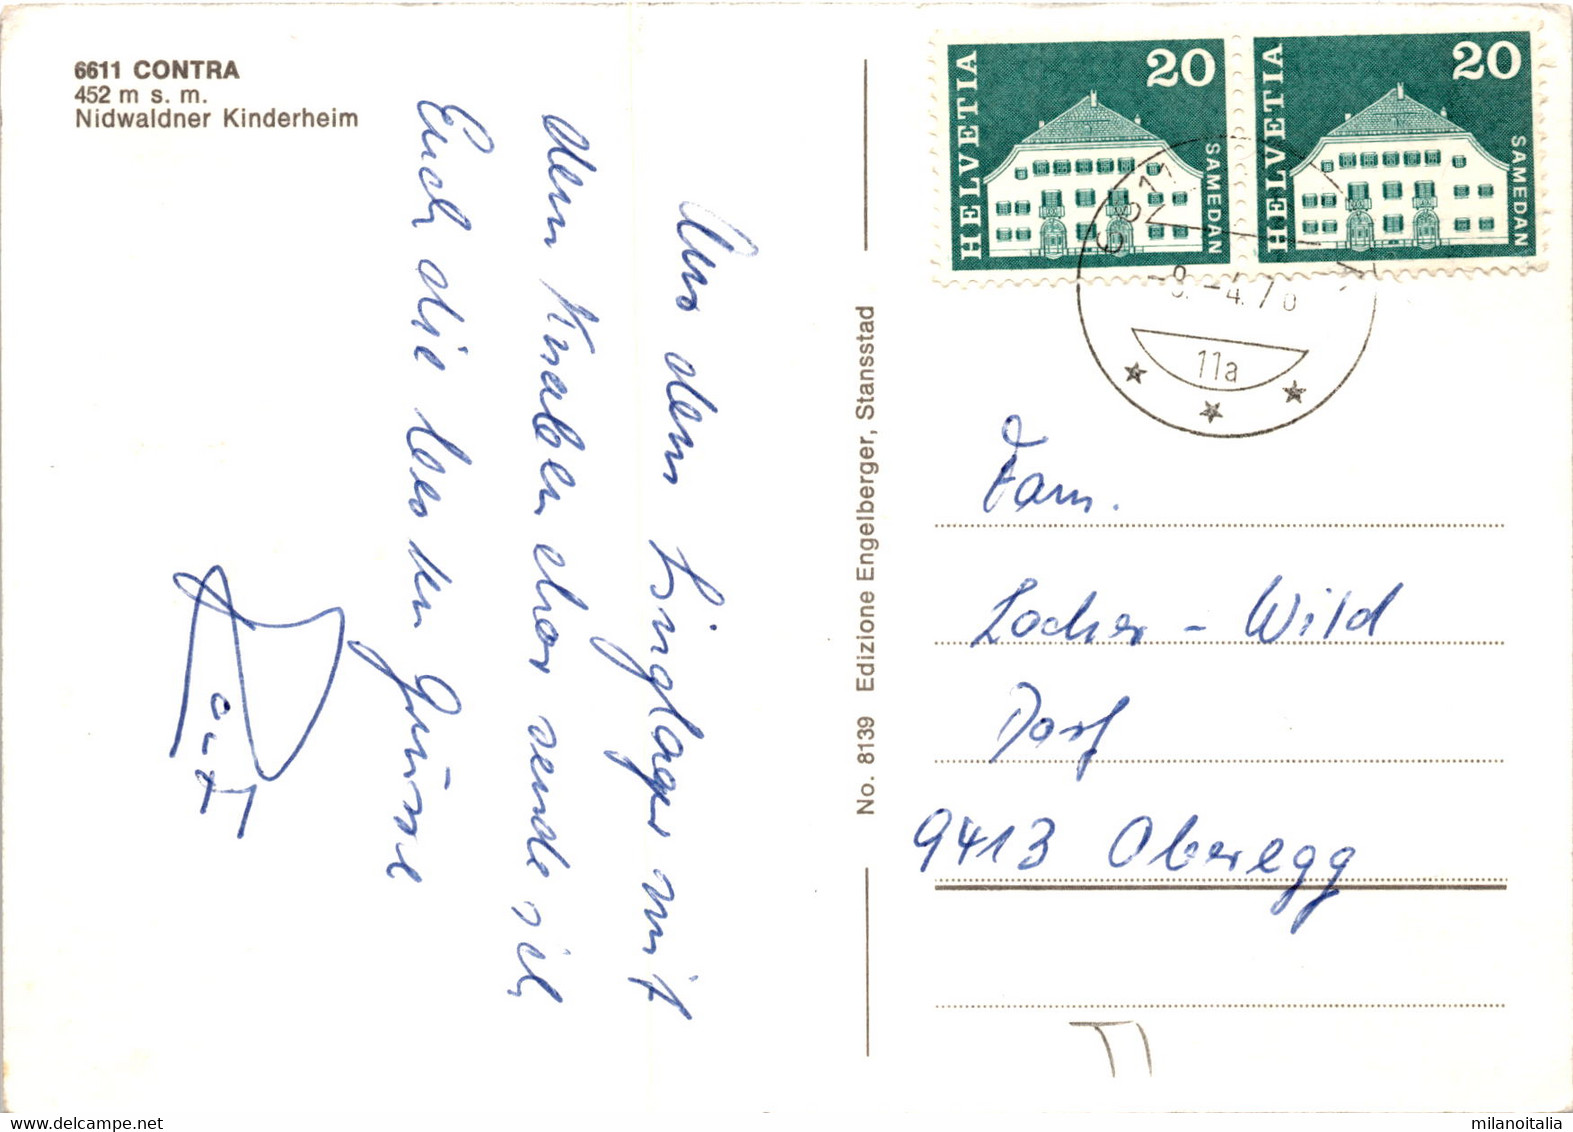 6611 CONTRA
452 m s. m.
Nidwaldner Kinderheim
Aus dem Singlager mit
dem Knabenchor sende ich
Euch die besten Grüsse
No. 8139 Edizione Engelberger, Stansstad
HELVETIA
20
SAMEDAN
HELVETIA
20
SAMEDAN
6611
-8.-4.76
11a
Fam.
Locher - Wild
Dorf
9413 Oberegg
milanoitalia